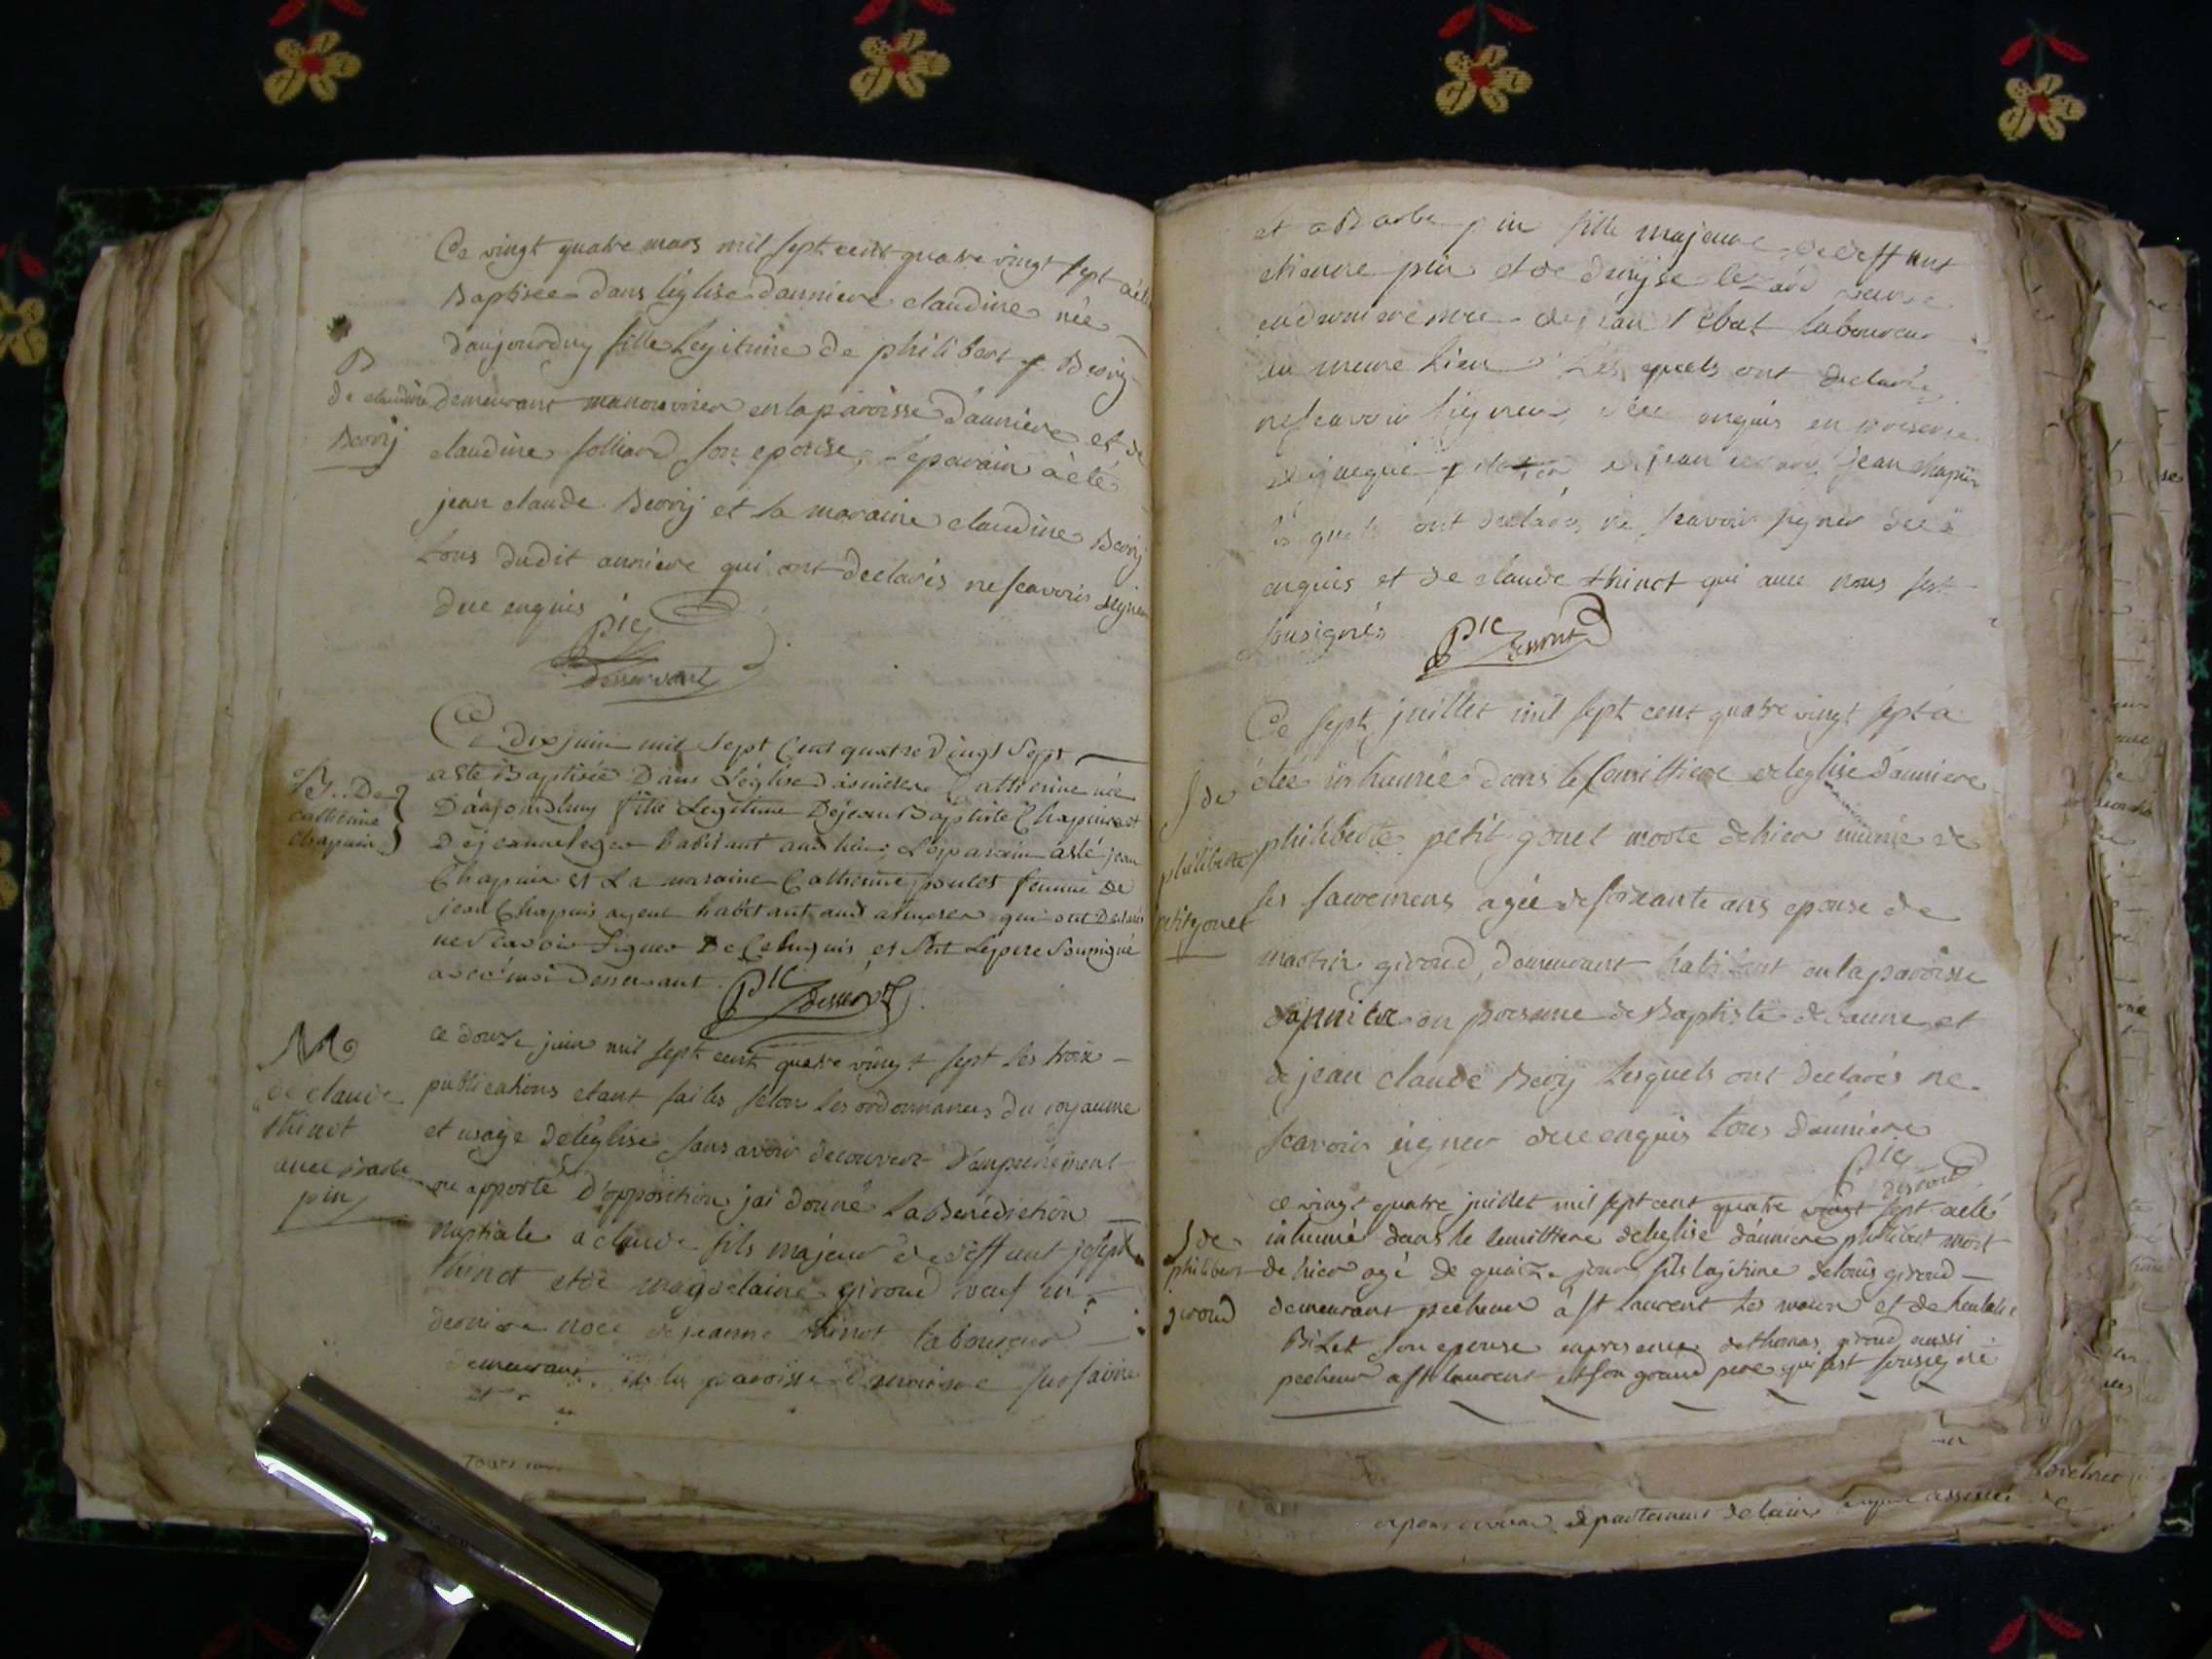 Ce vingt quatre mars mil sept cent quatre vingt sept a été
Baptisée dans léglise danniere claudine née
daujourduy fille Legitime de philibert Berrij
B
de claudine
Berrij
demeurant manouvrier en la paroisse danniere et de
claudine folliard son epouse, le parain à été
jean claude Berrij et la maraine claudine Berrij
tous dudit anniere qui ont declarés ne scavoir signer
dee enquis
Pic
desservant
Ce dix juin mil Sept Cent quatre vingt Sept
a ete Baptisée Dans Léglise dasniere Catherine née
B. De
catherine
Chapuis
Daujourdhuy fille Legitime De jean Baptiste Chapuis et
De jeanne leger habitant audt lieu; Le parain a eté jean
Chapuis et La maraine Catherine poulet femme de
jean Chapuis ayeul habitant audt asnieres qui ont Declarés
ne Scavoir Signer De Ce Enquis, et Sest Le pere Soussigné
avec moi Desservant.
Pic desservt
ce douze juin mil sept cent quatre vingt sept les trois
M
de claude
thinot
avec Barbe
pin
publications etant faites selon les ordonnances du royaume
et usage de léglise sans avoir decouvert dempechement
ne apporté D'opposition jai donné La Benediction
nuptiale a claude fils majeur de deffunt joseph
thinot et de magdelaine giroud veuf en
derniere noce de jeanne thinot laboureur
demeurant en la paroisse danniere sur saone
et a Barbe pin fille majeure de deffunt
etienne pin et de denyse veuve
en derniere noce de jean Rebut laboureur
au meme Lieu Lesquels ont declarés
ne scavoir signer dee enquis en presence
de jacque de jean jean chapuis
les quels ont declarés ne scavoir signer dee
enquis et de claude thinot qui avec nous sest
sousignés Pic desservt
Ce sept juillet mil sept cent quatre vingt sept à
S de
philiberte
petitgonet
été inhumée dans le semittiere de leglise danniere
philiberte petit gonet morte dehier munie de
ses sacremens agée de soixante ans epouse de
martin giroud, demeurant habitant en la paroisse
danniere en presence de Baptiste de Beaune et
de jean claude Berij lesquels ont declarés ne
scavoir signer dee enquis tous danniere
Pic desservt
ce vingt quatre juillet mil sept cent quatre vingt sept a été
S de
philibert
giroud
inhumé dans le semittiere de leglise danniere philibert mort
de hier agé de quinze jours fils legitime de louis giroud
demeurant pecheur à st laurent les macon et de
Bilet son epouse en presence de thomas giroud aussi
pecheur a st laurent et son grand pere qui sest soussigné
departement de lain